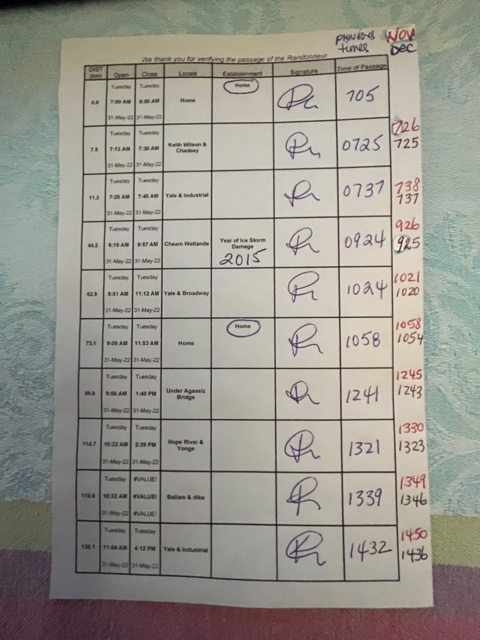 previous times NOV Dec
We thank you for verifying the passage of the Randonneur
DIST (km) Open Close Locale Establishment Signature Time of Passage
Tuesday Tuesday
0.0 7:00 AM 8:00 AM Home Home 705
31-May-22 31-May-22
Tuesday Tuesday 726
7.5 7:13 AM 7:30 AM Keith Wilson & Chadsey 0725 725
31-May-22 31-May-22
Tuesday Tuesday 738
11.2 7:20 AM 7:45 AM Yale & Industrial 0737 737
31-May-22 31-May-22
Tuesday Tuesday 926
44.2 8:18 AM 9:57 AM Cheam Wetlands Year of Ice Storm Damage 2015 0924 925
31-May-22 31-May-22
Tuesday Tuesday 1021
62.9 8:51 AM 11:12 AM Yale & Broadway 1024 1020
31-May-22 31-May-22
Tuesday Tuesday 1058
73.1 9:09 AM 11:53 AM Home Home 1058 1054
31-May-22 31-May-22
Tuesday Tuesday 1245
9:56 AM 1:40 PM Under Agassiz Bridge 1241 1243
31-May-22 31-May-22
Tuesday Tuesday 1330
114.7 10:22 AM 2:39 PM Hope River & Yonge 1321 1323
31-May-22 31-May-22
Tuesday #VALUE! 1349
10:32 AM #VALUE! Ballam & dike 1339 1346
31-May-22 #VALUE!
Tuesday Tuesday 1450
11:04 AM 4:12 PM Yale & Industrial 1432 1436
31-May-22 31-May-22